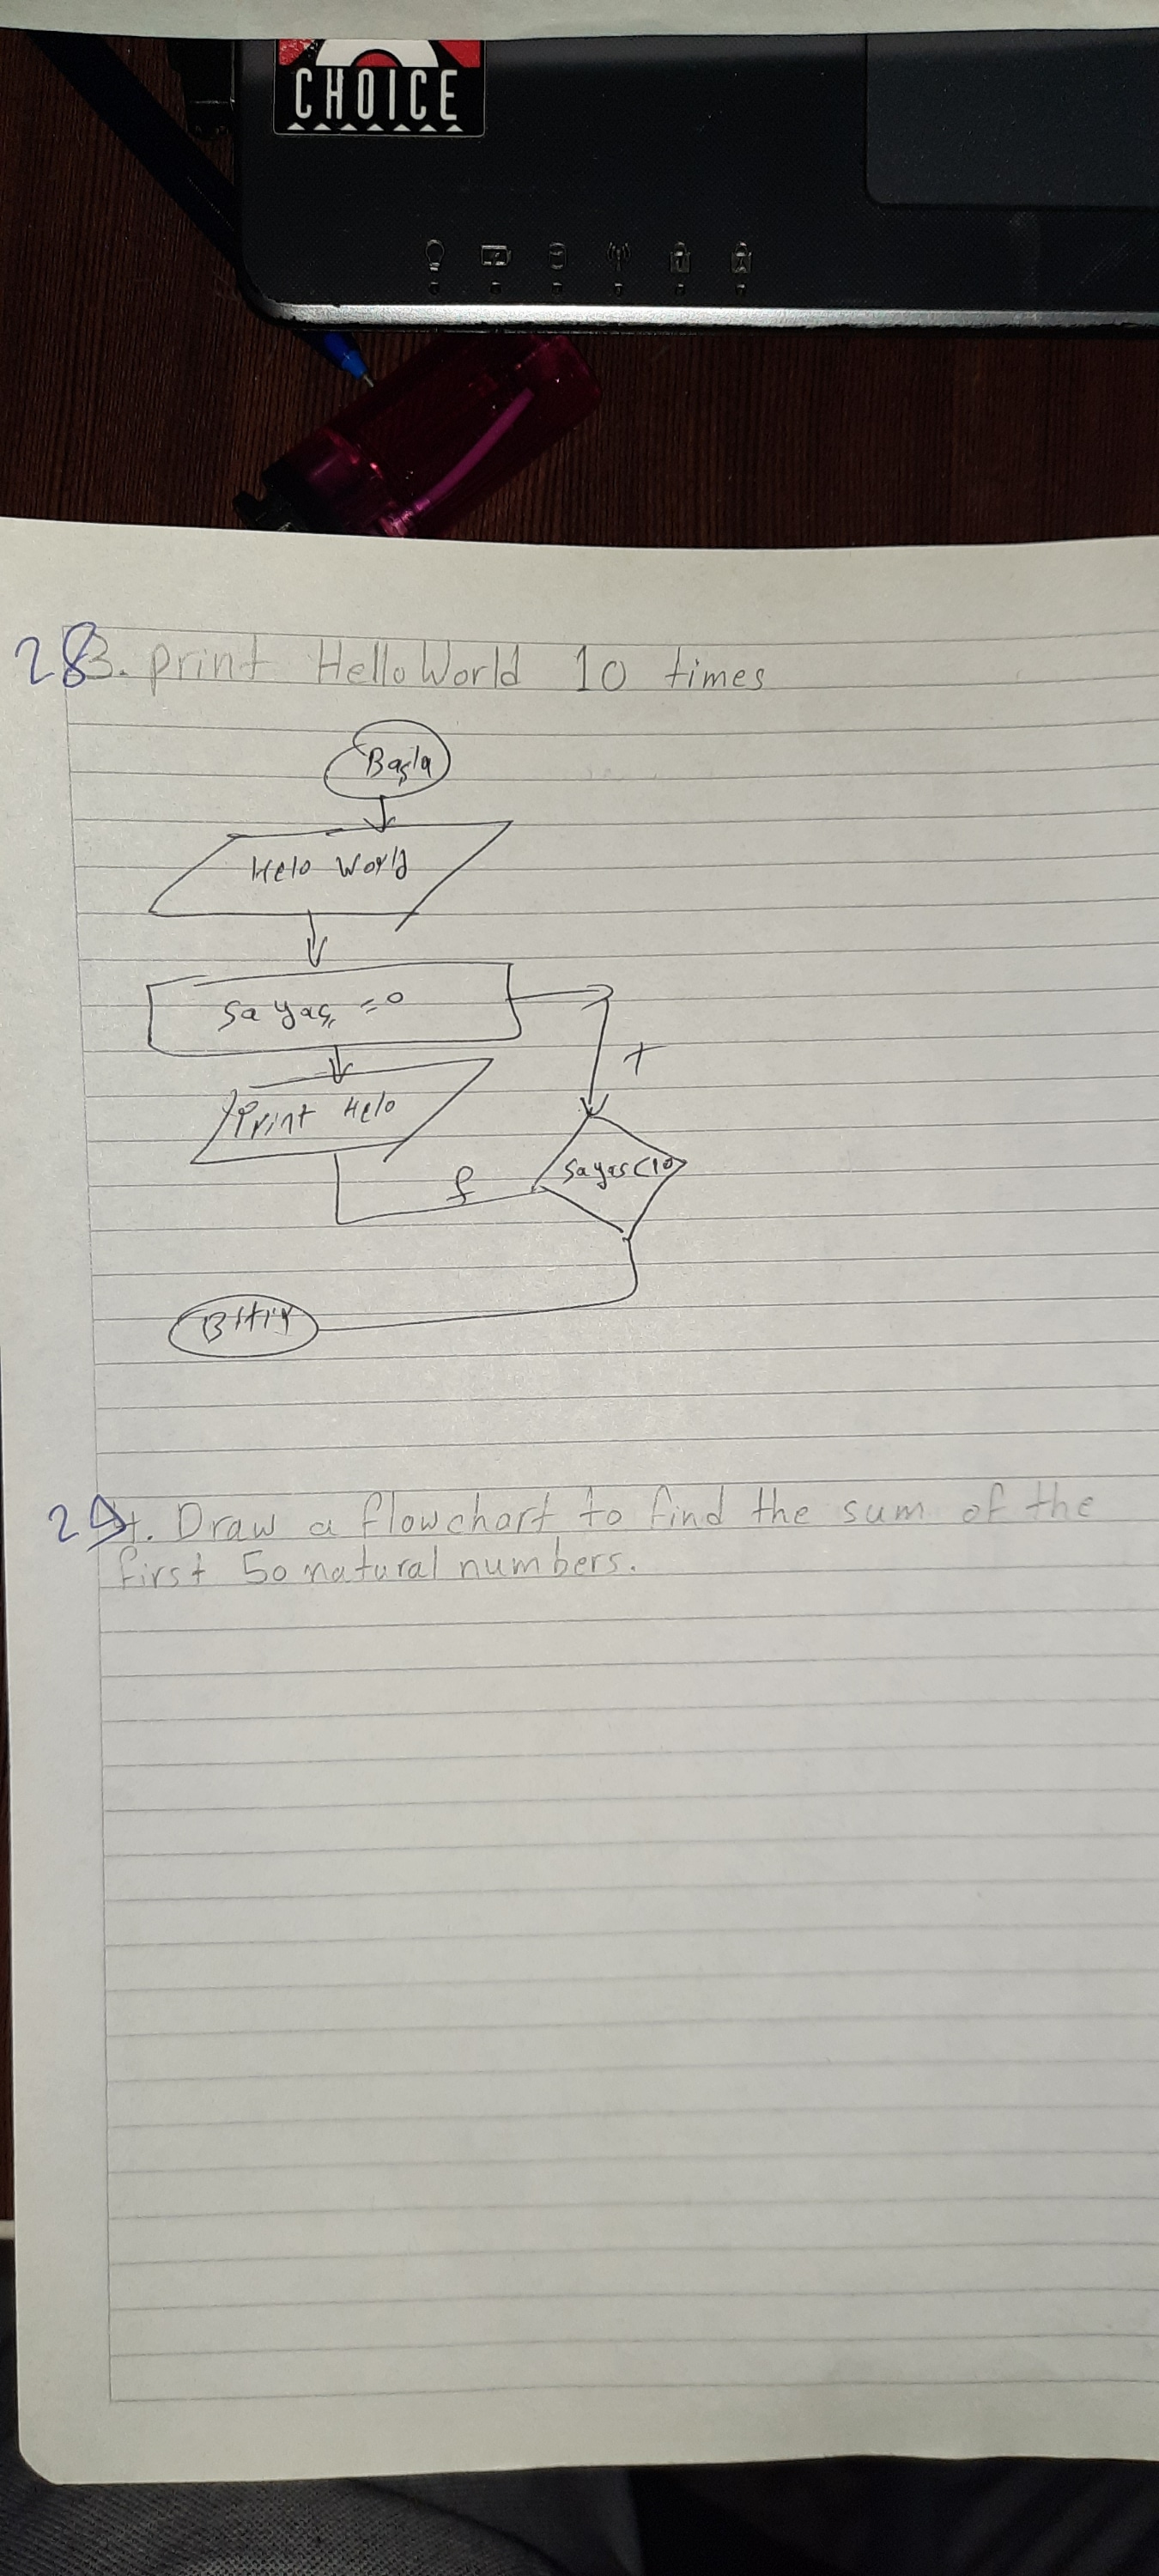 CHOICE
28. print Hello World 10 times
Başla
Helo World
Sayaç =0
Print Helo
t
Sayaç<10
f
29. Draw a flowchart to find the sum of the
first 50 natural numbers.